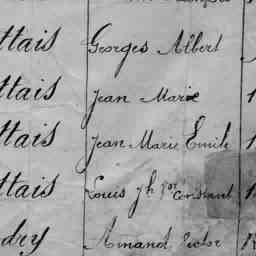 ttais Georges Albert
ttais Jean Marie 1
ttais Jean Marie Emile 1
ttais Louis Jh Constant 1
dry Amand Victor